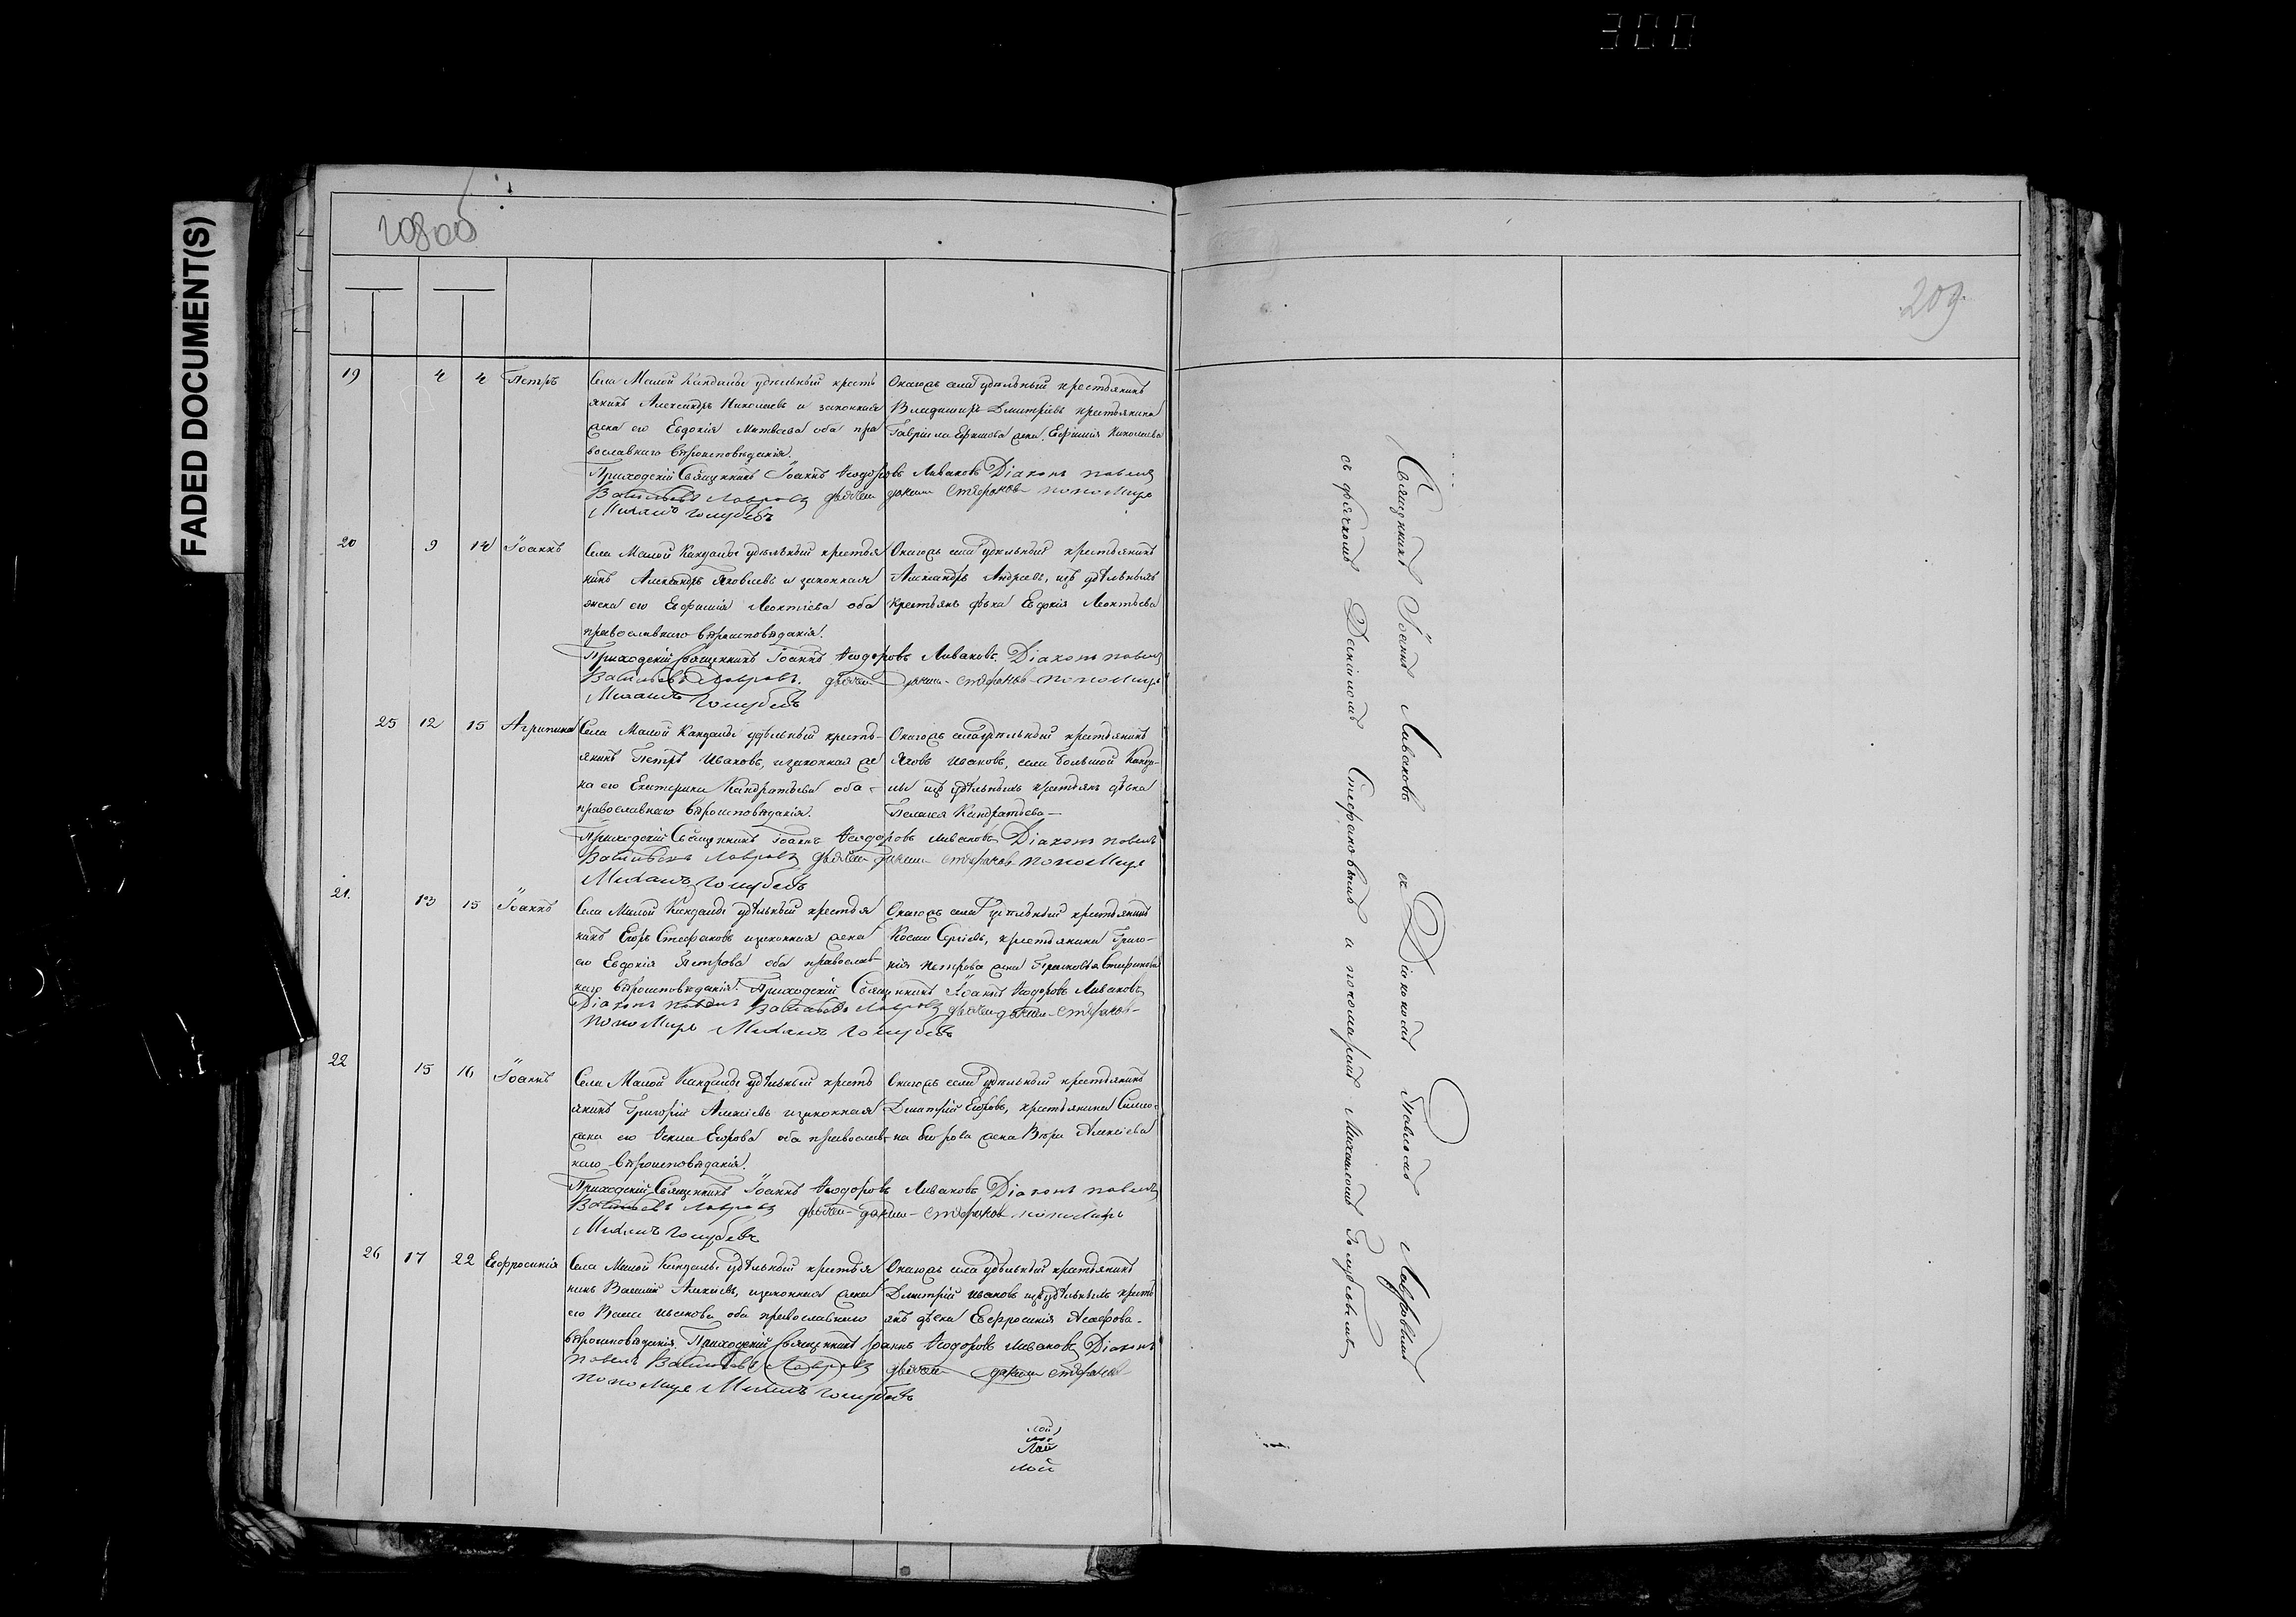 300
FADED DOCUMENT(S)
208об
209
19 4 4 Петръ Села Малой Кандалы удѣльный кресть
янинъ Александръ Николаевъ и законная
жена его Евдокія Матвѣева оба пра
вославнаго вѣроисповѣданія.
Онагожъ села удѣльный крестьянинъ
Владиміръ Дмитріевъ крестьянина
Гавріила Ефимова жена Николаева
Приходскій Священникъ Іоаннъ Ѳеодоровъ Ливановъ Діаконъ Павелъ
Васильевъ Лавровъ дьячекъ Стефановъ пономарь
Михаилъ Голубевъ
20 9 14 Іоаннъ Села Малой Кандалы удѣльный крестья
нинъ Александръ Яковлевъ и законная
жена его Евфимія Леонтіева оба
православнаго вѣроисповѣданія.
Онагожъ села удѣльный крестьянинъ
Александръ Андреевъ, изъ удѣльныхъ
крестьянъ дѣвка Евдокія Леонтьева
Приходскій Священникъ Іоаннъ Ѳеодоровъ Ливановъ. Діаконъ Павелъ
Васильевъ Лавровъ. дьячекъ Стефановъ пономарь
Михаилъ Голубевъ
25 12 15 Агрипина Села Малой Кандалы удѣльный кресть-
янинъ Петръ Ивановъ, и законная же
на его Екатерина Кандратьева оба
православнаго вѣроисповѣданія.
Онагожъ села удѣльный крестьянинъ
Яковъ Ивановъ, села Большой Канда-
лы изъ удѣльныхъ крестьянъ дѣвка
Пелагея Кандратьева
Приходскій Священникъ Іоаннъ Ѳеодоровъ Ливановъ Діаконъ Павелъ
Васильевъ Лавровъ дьячекъ Стефановъ пономарь
Михаилъ Голубевъ
21. 13 15 Іоаннъ Села Малой Кандалы удѣльный крестья
нинъ Егоръ Стефановъ и законная жена
его Евдокія Петрова оба православ-
наго вѣроисповѣданія. Приходскій Священникъ Іоаннъ Ѳеодоровъ Ливановъ
Онагожъ села удѣльный крестьянинъ
Косма Сергіевъ, крестьянина Григо-
рія Петрова жена Прасковья Стефанова
Діаконъ Павелъ Васильевъ Лавровъ дьячекъ Стефановъ
пономарь Михаилъ Голубевъ
22 15 16 Іоаннъ Села Малой Кандалы удѣльный кресть
янинъ Григорій Алексіевъ и законная
жена его Ѳекла Егорова оба православ-
наго вѣроисповѣданія.
Онагожъ села удѣльный крестьянинъ
Дмитрій Егоровъ, крестьянина Симео-
на Егорова жена Вѣра Алексіева
Приходскій Священникъ Іоаннъ Ѳеодоровъ Ливановъ Діаконъ Павелъ
Васильевъ Лавровъ дьячекъ Стефановъ пономарь
Михаилъ Голубевъ
26 17 22 Евфросинія Села Малой Кандалы удѣльный крестья
нинъ Василій Алексіевъ, и законная жена
его Васса Иванова оба православнаго
вѣроисповѣданія. Приходскій Священникъ Іоаннъ Ѳеодоровъ Ливановъ Діаконъ
Онагожъ села удѣльный крестьянинъ
Дмитрій Ивановъ изъ удѣльныхъ кресть
янъ дѣвка Евфросинія Агафова
Павелъ Васильевъ Лавровъ дьячекъ Стефановъ
пономарь Михаилъ Голубевъ
лой
Лой
лой
Священникъ Іоаннъ Ливановъ съ Діакономъ Павломъ Лавровымъ
съ дьячкомъ Стефановымъ и пономаремъ Михаиломъ Голубевымъ